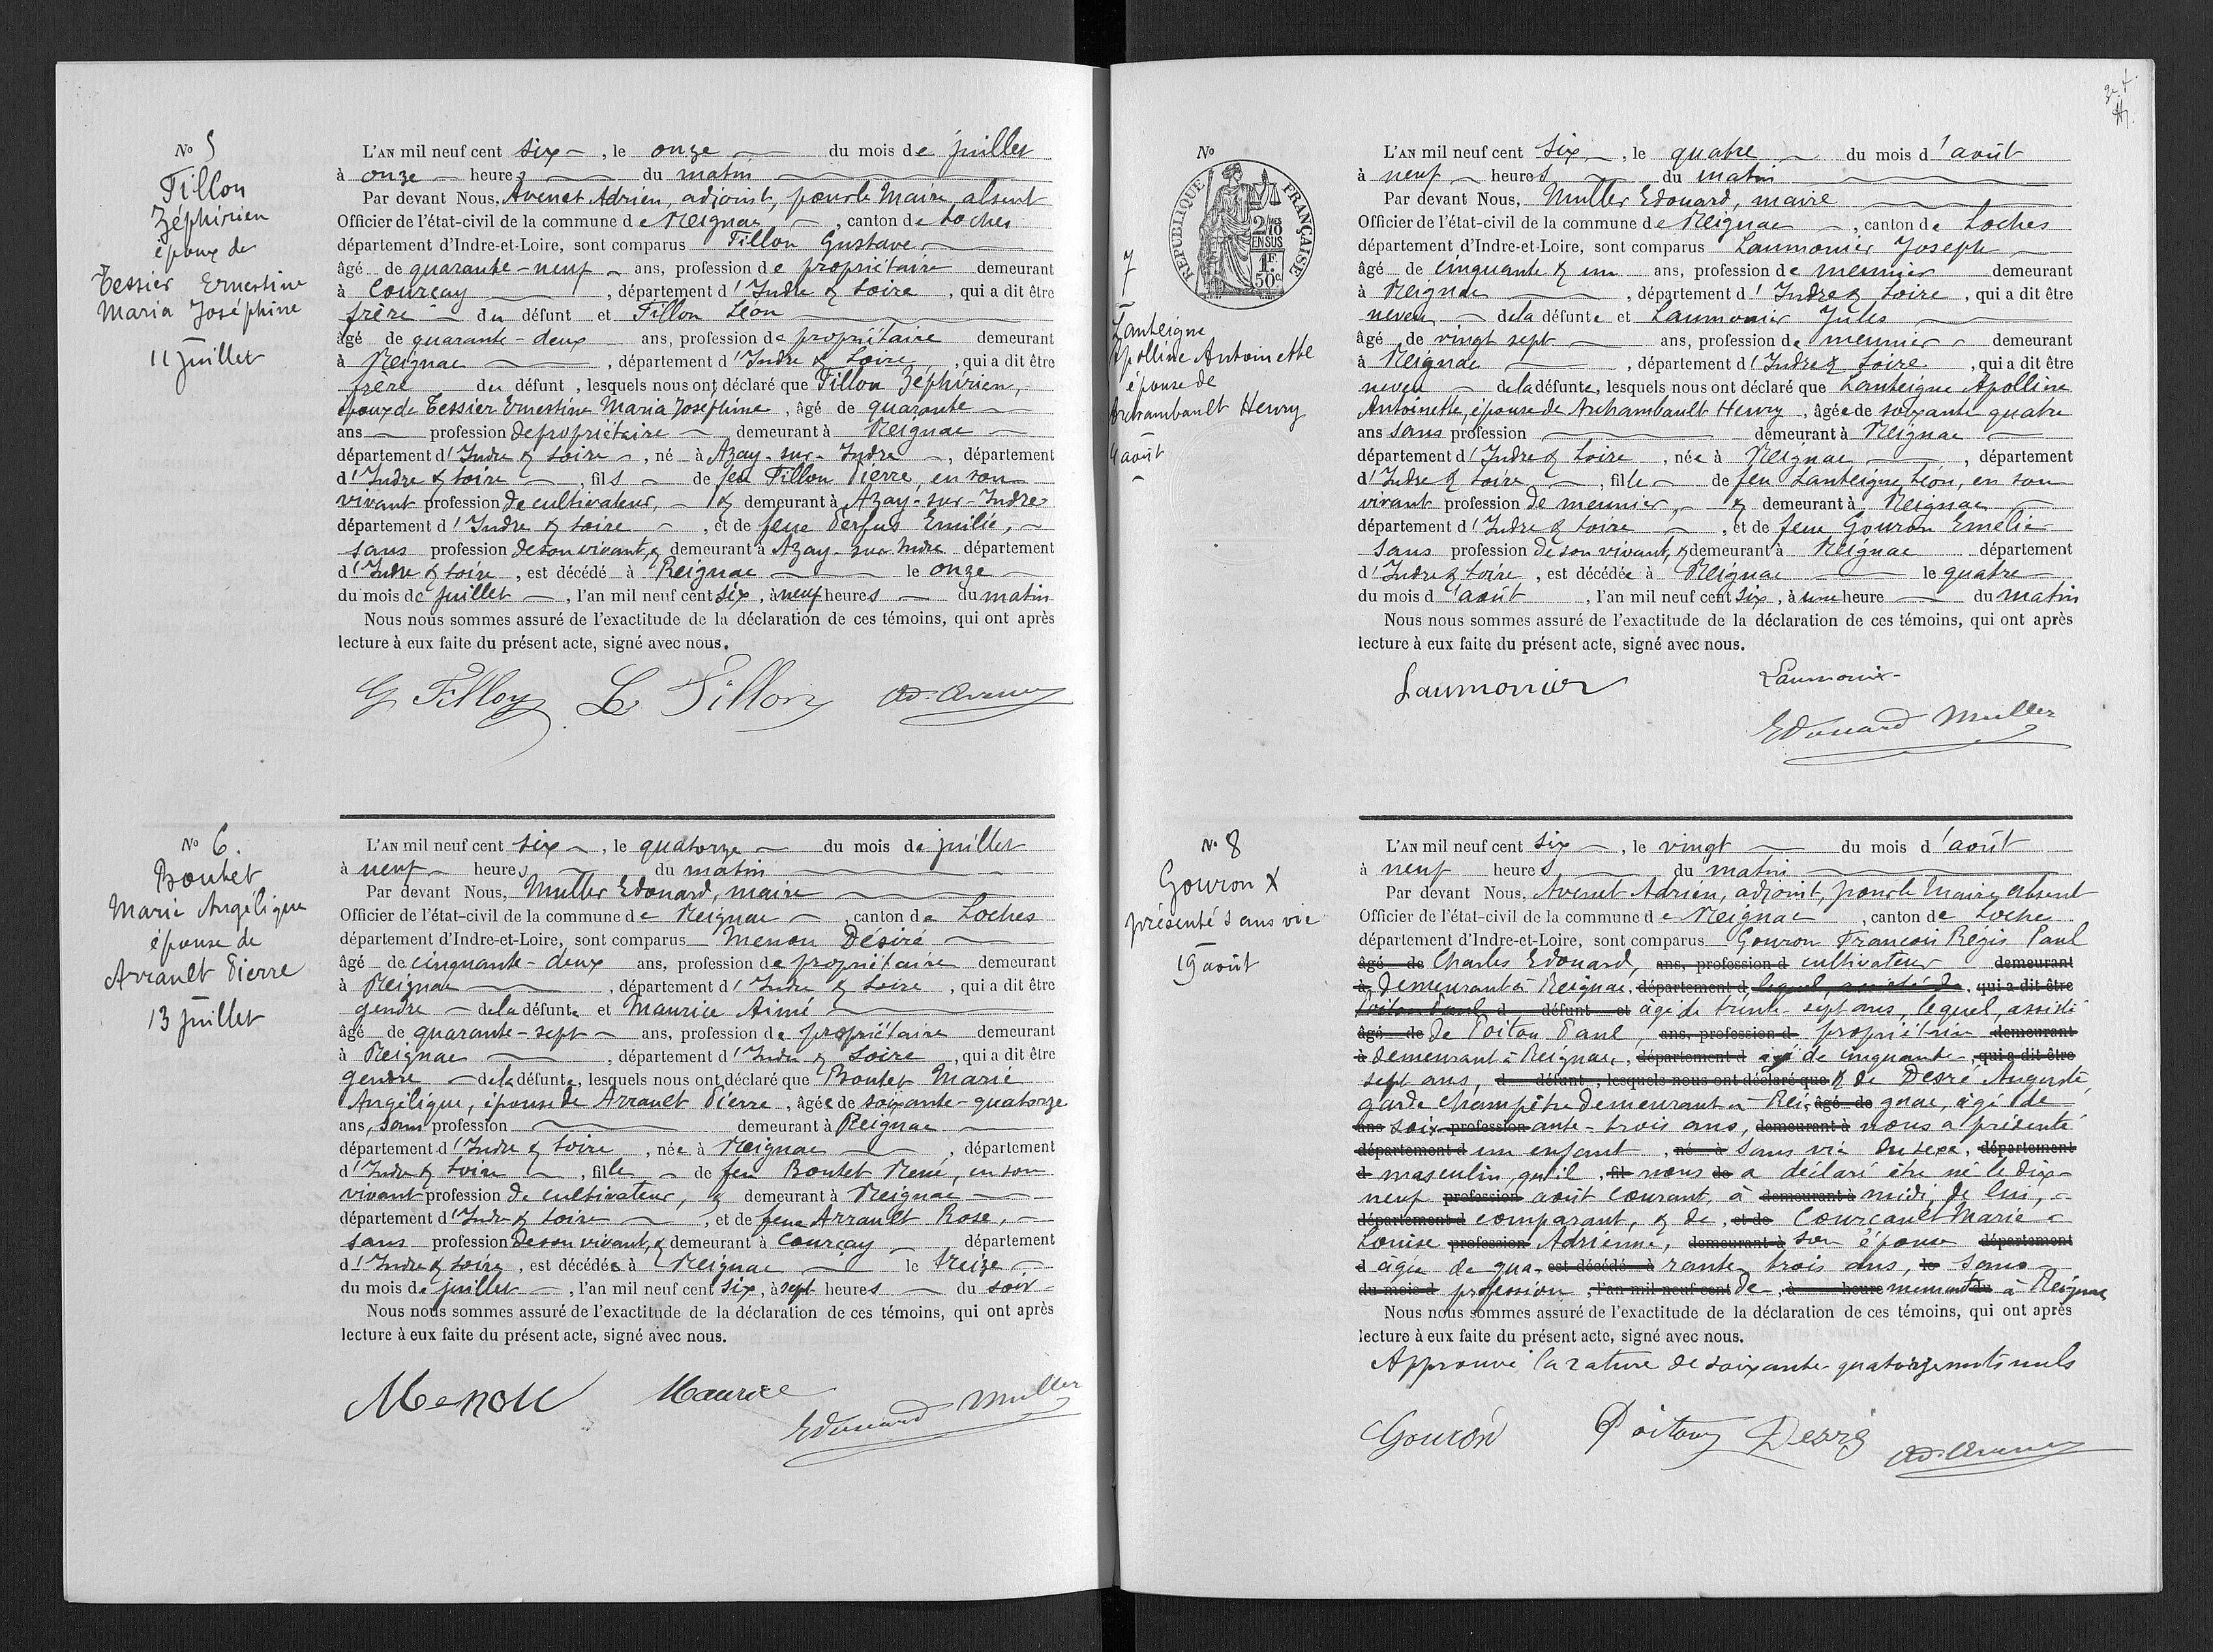 No 5
Tillon
Zéphirien
époux de
Tessier Ernestine
Maria Joséphine
11 Juillet
L'AN mil neuf cent six, le onze du mois de juillet
à onze heures du matin
Par devant Nous, Avenet Adrien, adjoint, pour le Maire absent
Officier de l'état-civil de la commune de Reignac, canton de Loches
département d'Indre-et-Loire, sont comparus Tillon Gustave
âgé de quarante-neuf ans, profession de propriétaire demeurant
à Courçay, département d'Indre & Loire, qui a dit être
frère du défunt et Tillon Léon
âgé de quarante-deux ans, profession de propriétaire demeurant
à Reignac, département d'Indre & Loire, qui a dit être
frère du défunt, lesquels nous ont déclaré que Tillon Zéphirien,
époux de Tessier Ernestine Maria Joséphine, âgé de quarante
ans profession de propriétaire demeurant à Reignac
département d'Indre & Loire, né à Azay-sur-Indre, département
d'Indre & Loire, fils de feu Tillon Pierre, en son
vivant profession de cultivateur, & demeurant à Azay-sur-Indre
département d'Indre & Loire, et de feue Emilie,
sans profession de son vivant, & demeurant à Azay-sur-Indre département
d'Indre & Loire, est décédé à Reignac le onze
du mois de juillet, l'an mil neuf cent six, à neuf heures du matin
Nous nous sommes assuré de l'exactitude de la déclaration de ces témoins, qui ont après
lecture à eux faite du présent acte, signé avec nous.
G Tillon L Tillon Ad. Avenet
No 6.
Boutet
Marie Angélique
épouse de
Arrault Pierre
13 juillet
L'AN mil neuf cent six, le quatorze du mois de juillet
à neuf heures du matin
Par devant Nous, Muller Edouard, maire
Officier de l'état-civil de la commune de Reignac, canton de Loches
département d'Indre-et-Loire, sont comparus Menou Désiré
âgé de cinquante-deux ans, profession de propriétaire demeurant
à Reignac, département d'Indre & Loire, qui a dit être
gendre de la défunte et Maurice Aimé
âgé de quarante-sept ans, profession de propriétaire demeurant
à Reignac, département d'Indre & Loire, qui a dit être
gendre de la défunte, lesquels nous ont déclaré que Boutet Marie
Angélique, épouse de Arrault Pierre, âgée de soixante-quatorze
ans, sans profession demeurant à Reignac
département d'Indre & Loire, née à Reignac, département
d'Indre & Loire, fille de feu Boutet René, en son
vivant profession de cultivateur, & demeurant à Reignac
département d'Indre & Loire, et de feue Arrault Rose,
sans profession de son vivant, & demeurant à Courçay département
d'Indre & Loire, est décédée à Reignac le treize
du mois de juillet, l'an mil neuf cent six, à sept heures du soir
Nous nous sommes assuré de l'exactitude de la déclaration de ces témoins, qui ont après
lecture à eux faite du présent acte, signé avec nous.
Menou Maurice
Edouard Muller
No
RÉPUBLIQUE FRANÇAISE
2/10 MES
EN SUS
1F.
50c
7
Lanteigne
Apolline Antoinette
épouse de
Archambault Henry
4 août
L'AN mil neuf cent six, le quatre du mois d'août
à neuf heures du matin
Par devant Nous, Muller Edouard, maire
Officier de l'état-civil de la commune de Reignac, canton de Loches
département d'Indre-et-Loire, sont comparus Laumonier Joseph
âgé de cinquante & un ans, profession de meunier demeurant
à Reignac, département d'Indre & Loire, qui a dit être
neveu de la défunte et Laumonier Jules
âgé de vingt sept ans, profession de meunier demeurant
à Reignac, département d'Indre & Loire, qui a dit être
neveu de la défunte, lesquels nous ont déclaré que Lanteigne Apolline
Antoinette, épouse de Archambault Henry, âgée de soixante quatre
ans sans profession demeurant à Reignac
département d'Indre & Loire, née à Reignac, département
d'Indre & Loire, fille de feu Lanteigne Léon, en son
vivant profession de meunier, & demeurant à Reignac
département d'Indre & Loire, et de feue Gouron Emélie
sans profession de son vivant, & demeurant à Reignac département
d'Indre & Loire, est décédée à Reignac le quatre
du mois d'août, l'an mil neuf cent six, à une heure du matin
Nous nous sommes assuré de l'exactitude de la déclaration de ces témoins, qui ont après
lecture à eux faite du présent acte, signé avec nous.
Laumonier Laumonier
Edouard Muller
No 8
Gouron X
présenté sans vie
19 août
L'AN mil neuf cent six, le vingt du mois d'août
à neuf heures du matin
Par devant Nous, Avenet Adrien, adjoint, pour le Maire absent
Officier de l'état-civil de la commune de Reignac, canton de Loche
département d'Indre-et-Loire, sont comparus Gouron François Régis Paul
âgé de Charles Edouard, ans, profession d cultivateur demeurant
à Demeurant à Reignac, département d lequel, assisté de, qui a dit être
Poitou Paul d défunt et âgé de trente-sept ans, lequel, assisté
âgé de De Poitou Paul, ans, profession d propriétaire demeurant
à demeurant à Reignac, département d âgé de cinquante-, qui a dit être
sept ans, d défunt, lesquels nous ont déclaré que & de Desré Auguste,
garde champêtre demeurant à Rei- âgé de gnac, âgé de
ans soix- profession ante-trois ans, demeurant à nous a présenté
département d un enfant, né à sans vie du sexe, département
d masculin, qu'il, fil nous de a déclaré être né le dix-
neuf profession août courant, à demeurant à midi, de lui,
département d comparant, & de, et de Courcault Marie
Louise profession Adrienne, demeurant à son épouse département
d âgée de qua- est décédé à rante-trois ans, le sans
du mois d profession, l'an mil neuf cent de-, à heure meurant du à Reignac
Nous nous sommes assuré de l'exactitude de la déclaration de ces témoins, qui ont après
lecture à eux faite du présent acte, signé avec nous.
Approuvé la rature de soixante-quatorze mots nuls
Gouron Poitou Desré Ad. Avenet